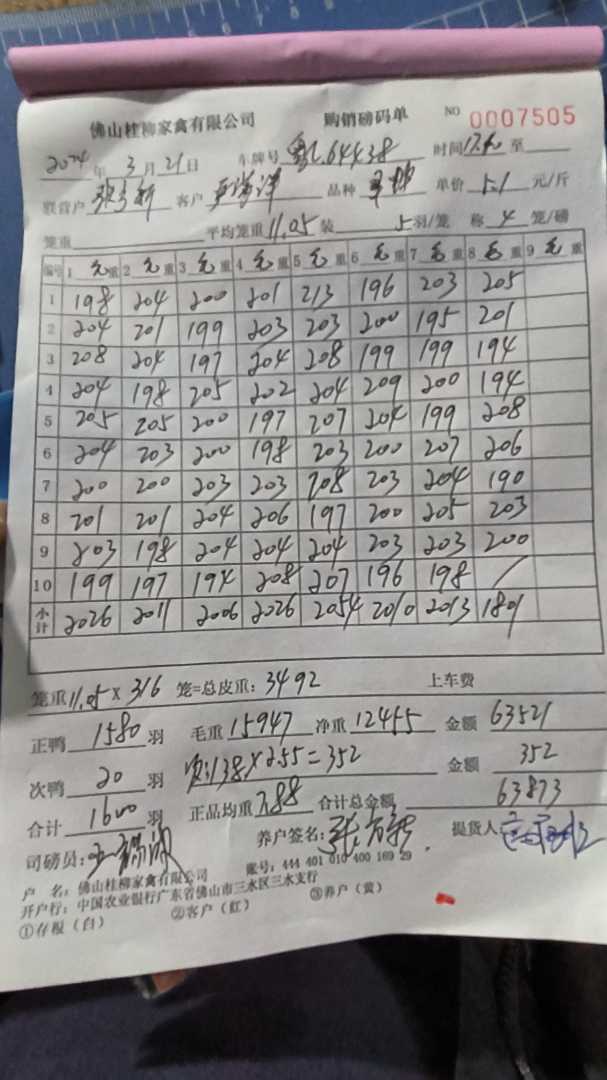 佛山桂柳家禽有限公司 购销磅码单 NO 0007505
2024年 3月 21日 车牌号 粤L64438 时间 至
联营户 客户 品种 单价 5.1 元/斤
笼重 平均笼重 11.05 装 5 羽/笼 称 4 笼/磅
编号 1 毛重 2 毛重 3 毛重 4 毛重 5 毛重 6 毛重 7 毛重 8 毛重 9 毛重
1 198 204 200 201 213 196 203 205
2 204 201 199 203 203 200 195 201
3 208 204 197 204 208 199 199 194
4 204 198 205 202 204 209 200 194
5 205 205 200 197 207 204 199 208
6 204 203 200 198 203 200 207 206
7 200 200 203 203 208 203 204 190
8 201 201 204 206 197 200 205 203
9 203 198 204 204 204 203 203 200
10 199 197 194 208 207 196 198 /
小计 2026 2011 2006 2026 2054 2010 2013 1801
笼重 11.05 × 316 笼=总皮重: 3492 上车费
正鸭 1580 羽 毛重 15947 净重 12455 金额 63521
次鸭 20 羽 次:138×2.55=352 金额 352
合计 1600 羽 正品均重 7.88 合计总金额 63873
司磅员: 养户签名: 提货人
户 名: 佛山桂柳家禽有限公司 账号: 444 401 010 400 169 29
开户行: 中国农业银行广东省佛山市三水区三水支行
①存根（白） ②客户（红） ③养户（黄）